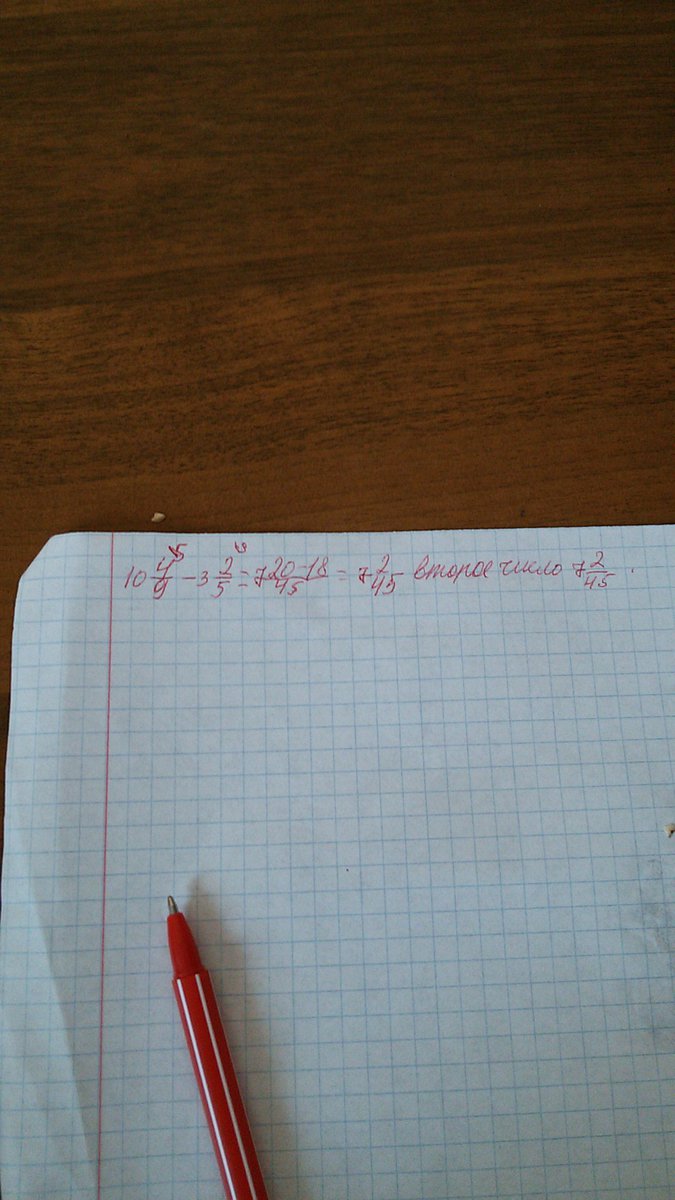 10 4/9 ⁵ - 3 2/5 ⁹ = 7 20-18/45 = 7 2/45 второе число 7 2/45.